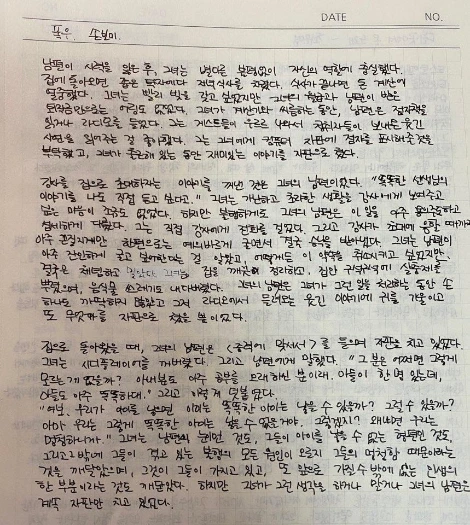 DATE NO.
폭우. 손보미.
남편이 시력을 잃은 후, 그녀는 별다른 불평없이 자신의 역할에 충실했다.
집에 돌아오면 좋은 저녁식사를 차렸다. 식사가 끝나면 돈 계산에
열중했다. 그녀는 빨리 빚을 갚고 싶었지만 그녀의 월급과 남편이 받은
보험금만으로는 어림도 없었다. 그녀가 계산기와 씨름하는 동안, 남편은 점자책을
읽거나 라디오를 들었다. 그는 게스트들이 우르르 나와서 청취자들이 보내온 웃긴
사연을 읽어주는 걸 좋아했다. 그는 그녀에게 컴퓨터 자판에 점자를 표시해줄것을
부탁했고, 그녀가 출근해 있는 동안 재미있는 이야기를 자판으로 쳤다.
강사를 집으로 초대하자는 이야기를 꺼낸 것은 그녀의 남편이었다. "똑똑한 선생님의
이야기를 나도 직접 듣고 싶다고." 그녀는 가난하고 초라한 생활을 강사에게 보여주고
싶은 마음이 조금도 없었다. 하지만 불행하게도 그녀의 남편은 이 일을 아주
그는 직접 강사에게 전화를 걸었다. 그리고 강사가 초대에 응할 때까지
아주 끈질기게 한편으로는 예의바르게 굴면서 결국 승낙을 받아냈다. 그녀는 남편이
아주 간만에 굴고 있다는 걸 알았고, 어떻게든 이 약속을 취소시키고 싶었지만,
결국은 체념하고 말았다. 그녀는 집을 깨끗이 정리하고, 집안 구석구석에 살충제를
뿌렸으며, 음식물 쓰레기도 내다버렸다. 그녀의 남편은 그녀가 그런 일을 처리하는 동안 손
하나도 까딱하지 않았고 그저 라디오에서 들려오는 웃긴 이야기에 귀를 기울이고
또 무엇인가를 자판으로 쳤을 뿐이었다.
집으로 돌아왔을 때, 그녀의 남편은 <폭력에 맞서서>를 들으며 자판을 치고 있었다.
그녀는 시디플레이어를 꺼버렸다. 그리고 남편에게 말했다. "그 분은 어쩌면 그렇게
모르는게 없을까? 아내분도 아주 공부를 오래 하신 분이래. 아들이 한 명 있는데,
아들도 아주 똑똑하대." 그리고 이렇게 덧붙였다.
"여보, 우리가 아이를 낳으면 이처럼 똑똑한 아이를 낳을 수 있을까? 그럴 수 있을까?
아마 우리는 그렇게 똑똑한 아이는 낳을 수 없을거야. 그렇겠지? 왜냐면 우리는
멍청하니까." 그녀는 남편의 눈이 먼 것도, 그들이 아이를 낳을 수 없는 형편인 것도,
그리고 그밖에 그들이 겪고 있는 불행의 모든 원인이 오로지 그들의 멍청함 때문이라는
것을 깨달았으며, 그것이 그들이 가지고 있고, 또 앞으로 가질 수 밖에 없는 인생의
한 부분이라는 것도 깨달았다. 하지만 그녀가 그런 생각을 하거나 말거나 그녀의 남편은
계속 자판만 치고 있었다.